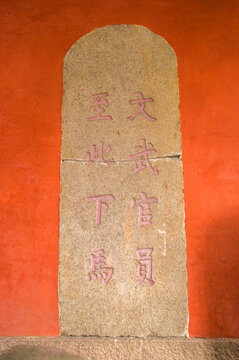 文武官員
至此下馬